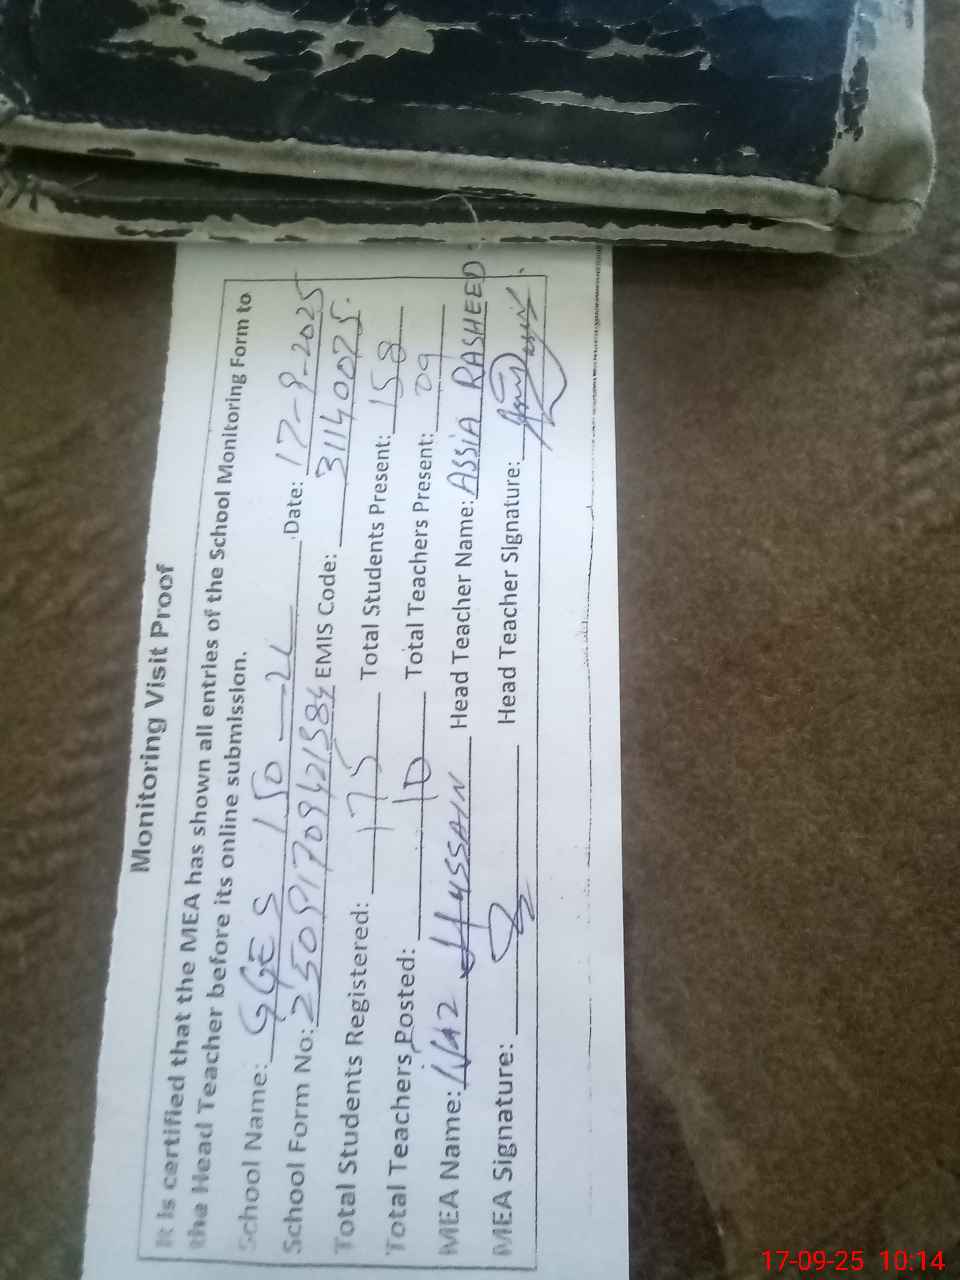 Monitoring Visit Proof
It is certified that the MEA has shown all entries of the School Monitoring Form to
the Head Teacher before its online submission.
School Name: GGES 150-2L Date: 17-9-2025
School Form No: EMIS Code: 31140075.
Total Students Registered: 175 Total Students Present: 158
Total Teachers Posted: 10 Total Teachers Present: 09
MEA Name: HUSSAIN Head Teacher Name: ASSIA RASHEED.
MEA Signature: Head Teacher Signature:
17-09-25 10:14